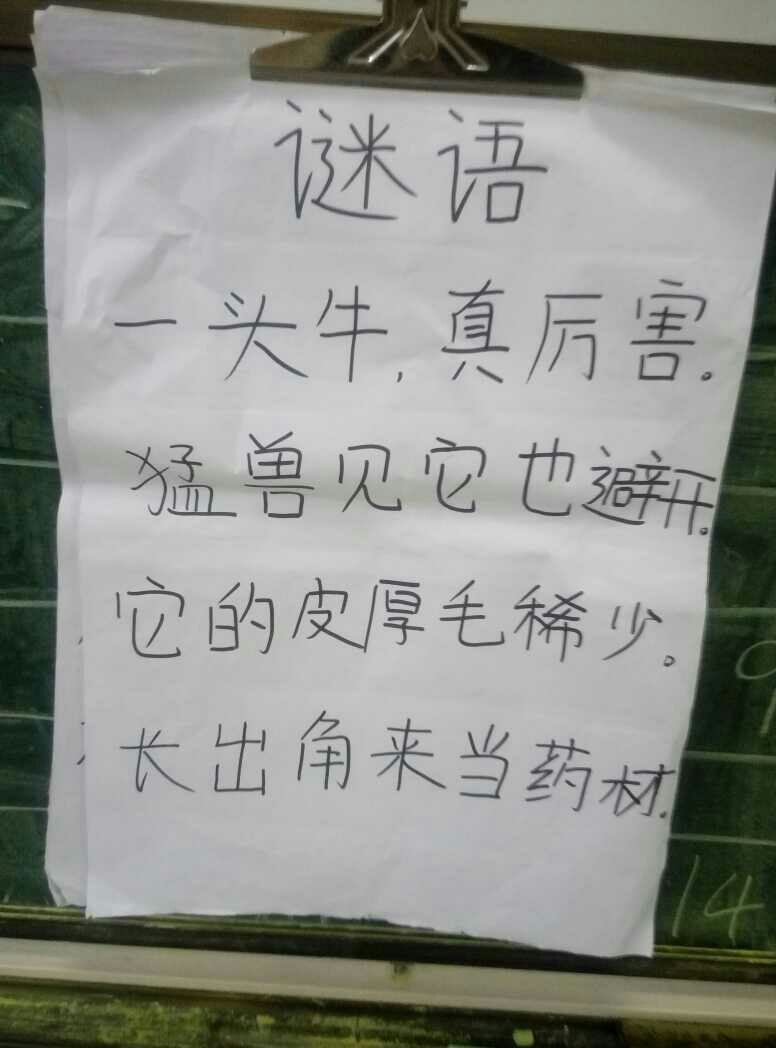 谜语
一头牛,真厉害。
猛兽见它也避开.
它的皮厚毛稀少。
长出角来当药材.
14